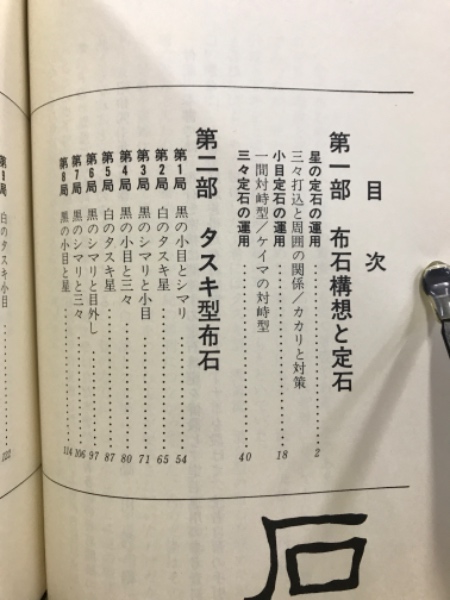 目次
第一部 布石構想と定石
星の定石の運用……………………2
三々打込と周囲の関係/カカリと対策
小目定石の運用……………………18
一間対峙型/ケイマの対峙型
三々定石の運用……………………40
第二部 タスキ型布石
第1局 黒の小目とシマリ……………54
第2局 白のタスキ星……………65
第3局 黒のシマリと小目……………71
第4局 黒の小目と三々……………80
第5局 白のタスキ星……………87
第6局 黒のシマリと目外し……………97
第7局 黒のシマリと三々……………106
第8局 黒の小目と星……………114
第9局 白のタスキ小目……………122
石